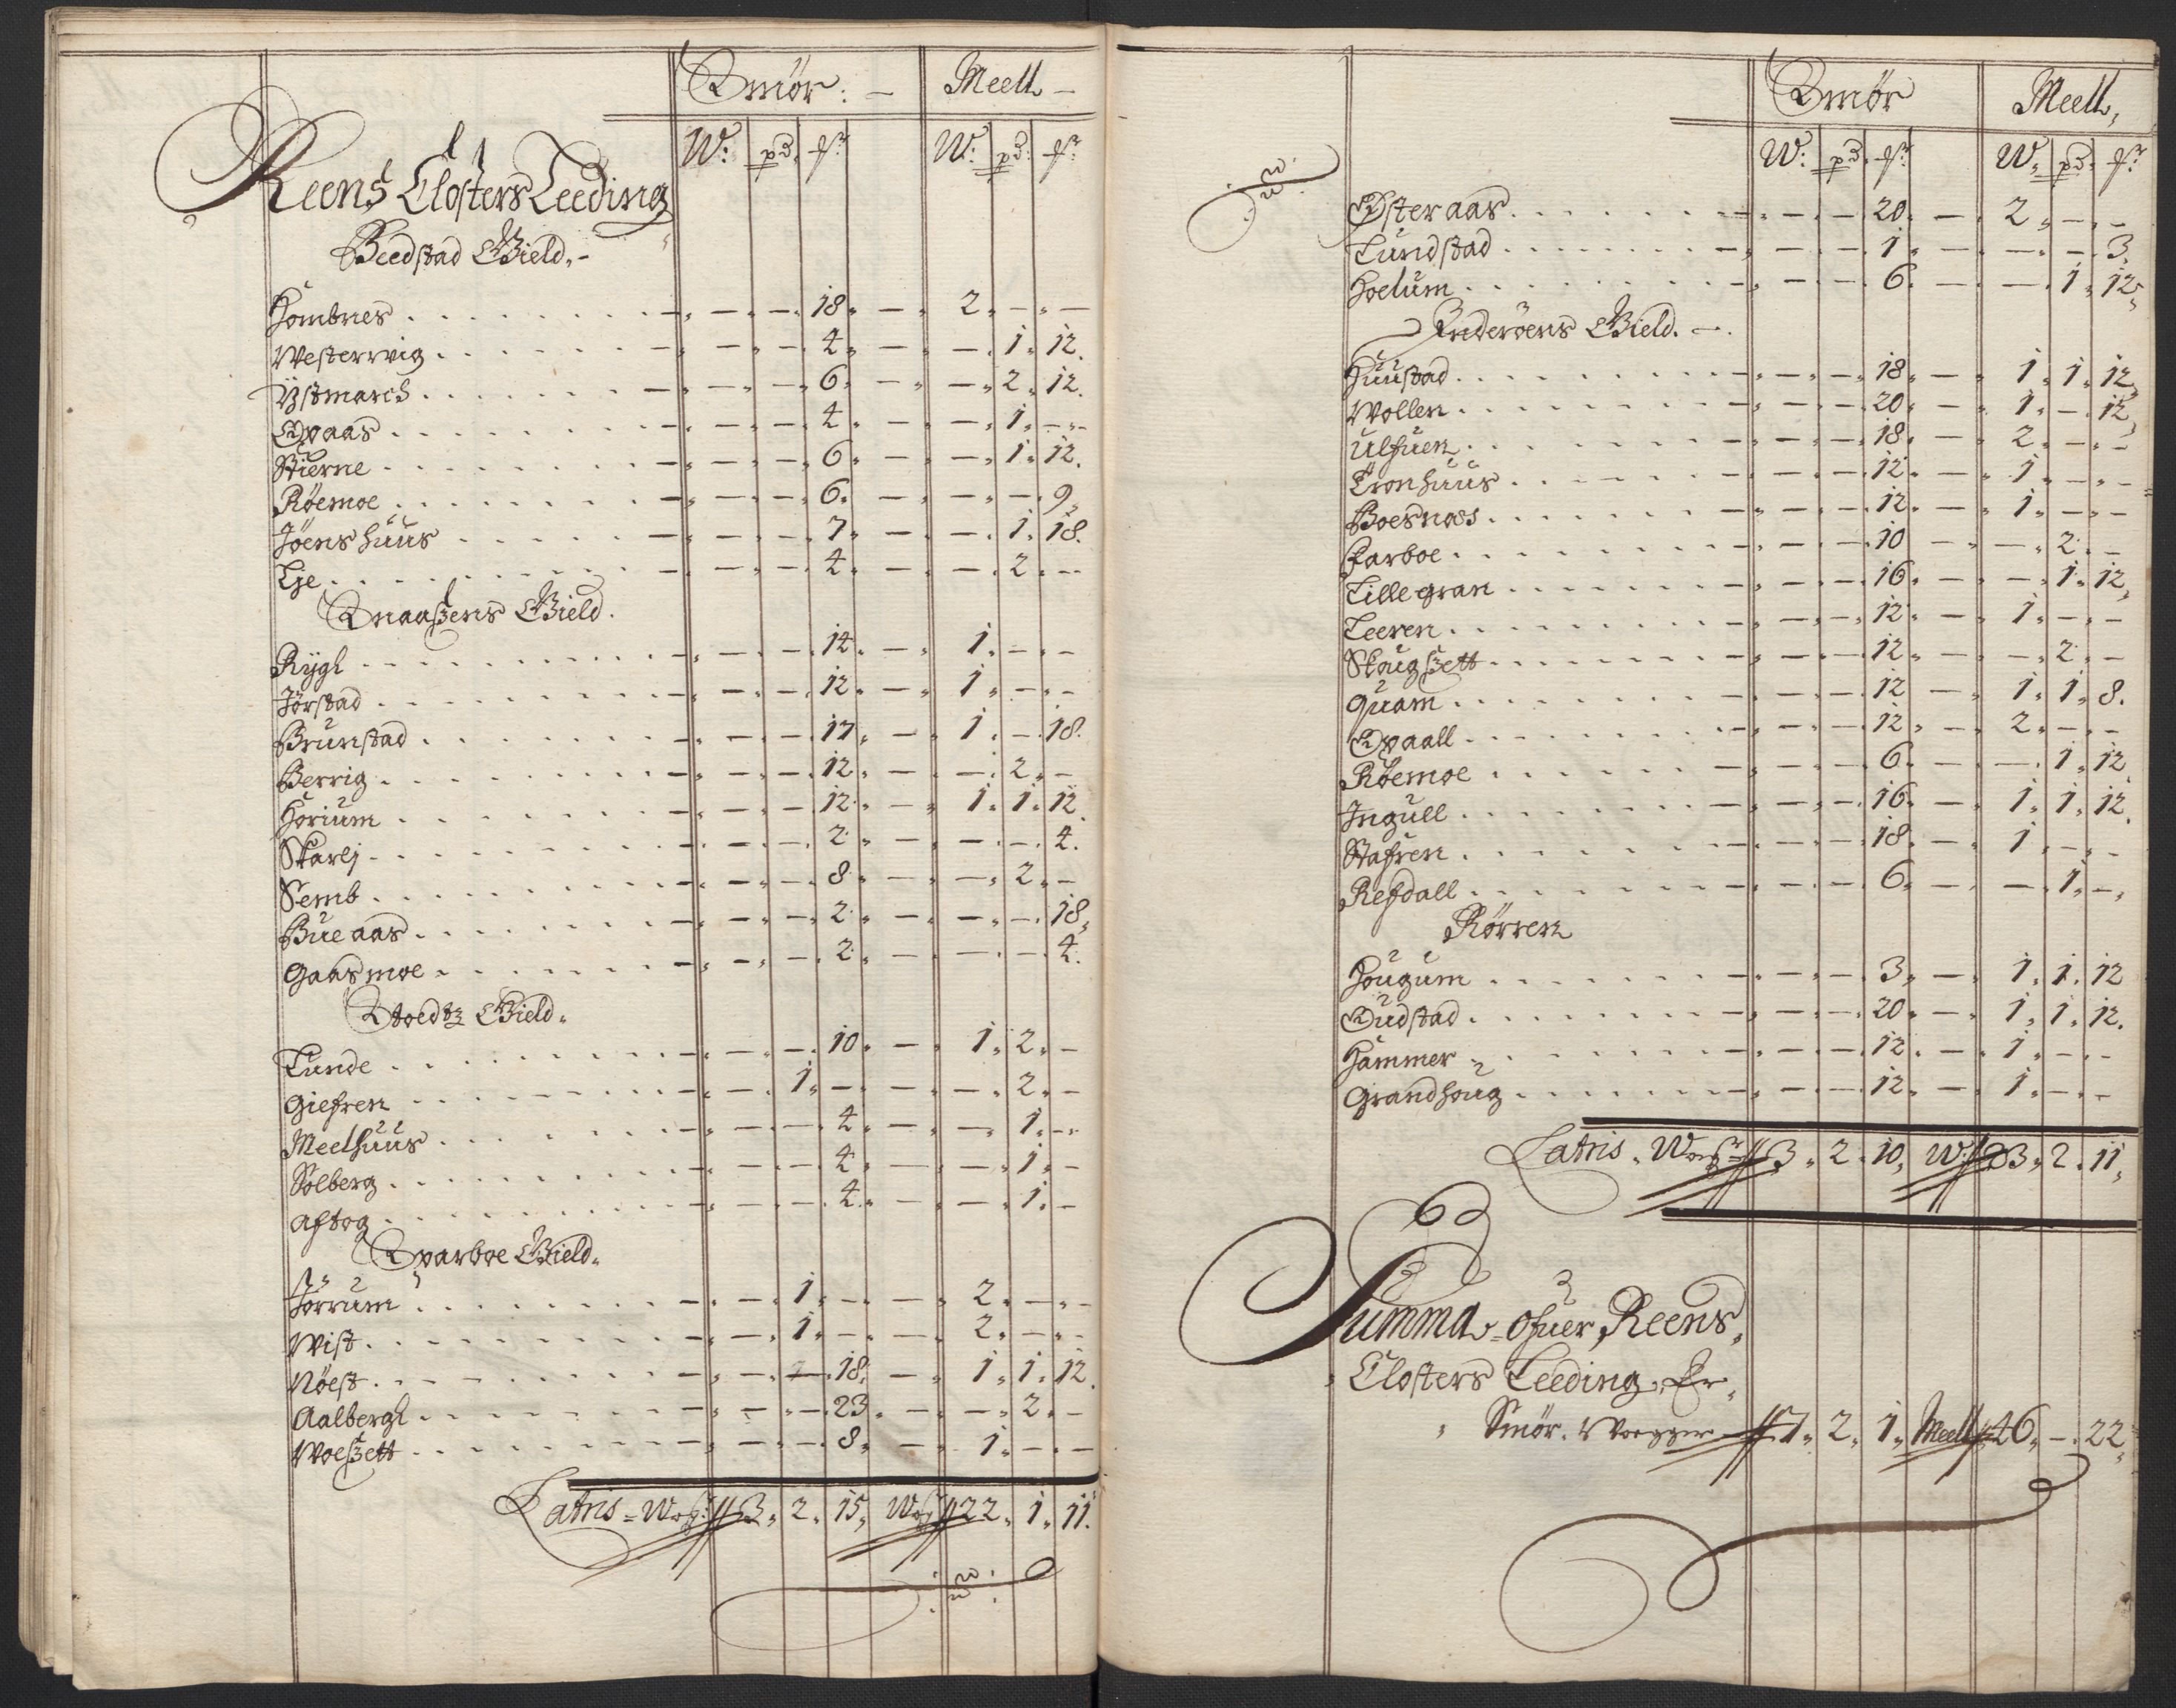 Smör: - Meell -
W: pd. ℔: W: pd: ℔:
Reens Closters Leeding
Beedstad Gield. -
Hombnes . . . - - 18. - 2. - -
Westervig . . . - - 4. - - 1. 12.
Østmarch . . . - - 6. - - 2. 12.
Opaas . . . - - 4. - - 1. -
Stierne . . . - - 6. - - 1. 12.
Röemoe . . . - - 6. - - - 9.
Jöenshuus . . . - - 7. - - 1. 18.
Lje . . . - - 4. - - 2. -
Snaaszens Gield.
Rygh . . . - - 14. - 1. - -
Jörstad . . . - - 12. - 1. - -
Brunstad . . . - - 17. - 1. - 18.
Berrig . . . - - 12. - - 2. -
Horium . . . - - 12. - 1. 1. 12.
Skarlj . . . - - 2. - - - 4.
Semb . . . - - 8. - - 2. -
Bueaas . . . - - 2. - - - 18.
Gaasmoe . . . - - 2. - - - 4.
Stoedtz Gield.
Lunde . . . - - 10. - 1. 2. -
Giefren . . . - 1. - - - 2. -
Meelhuus . . . - - 4. - - 1. -
Solberg . . . - - 4. - - 1. -
Aftog . . . - - 4. - - 1. -
Sparboe Gield.
Jörrum . . . - 1. - - 2. - -
Wist . . . - 1. - - 2. - -
Nöest . . . - - 18. - 1. 1. 12.
Aalbergh . . . - - 23. - - 2. -
Woeszett . . . - - 8. - 1. - -
Latris - Wog: 3. 2. 15. Wog 22. 1. 11.
Smör Meell.
W: pd. ℔: W. pd. ℔:
Østeraas . . . - - 20. - 2. - -
Lundstad . . . - - 1. - - - 3.
Hoelum . . . - - 6. - - 1. 12.
Inderöens Gield. -
Huustad . . . - - 18. - 1. 1. 12.
Wollen . . . - - 20. - 1. - 12.
Ulfuen . . . - - 18. - 2. - -
Tronhuus . . . - - 12. - 1. - -
Boesnæs . . . - - 12. - 1. - -
Farboe . . . - - 10 - - 2. -
Lillegran . . . - - 16. - - 1. 12.
Leeren . . . - - 12. - 1. - -
Skougszett . . . - - 12. - - 2. -
Quam . . . - - 12 - 1. 1. 8.
Opaall . . . - - 12. - 2. - -
Röemoe . . . - - 6. - - 1. 12.
Ingull . . . - - 16. - 1. 1. 12.
Stafren . . . - - 18. - 1. - -
Refdall . . . - - 6. - - 1. -
Rörren
Hougum . . . - - 3. - 1. 1. 12
Oudstad . . . - - 20. - 1. 1. 12.
Hammer . . . - - 12. - 1. - -
Grandhoug . . . - - 12. - 1. - -
Latris. Wog 3. 2. 10. W: 23. 2. 11.
Summa - Ofuer Reens
Closters Leeding, Er
Smör. Woegger 7. 2. 1. Meell 46. - 22.